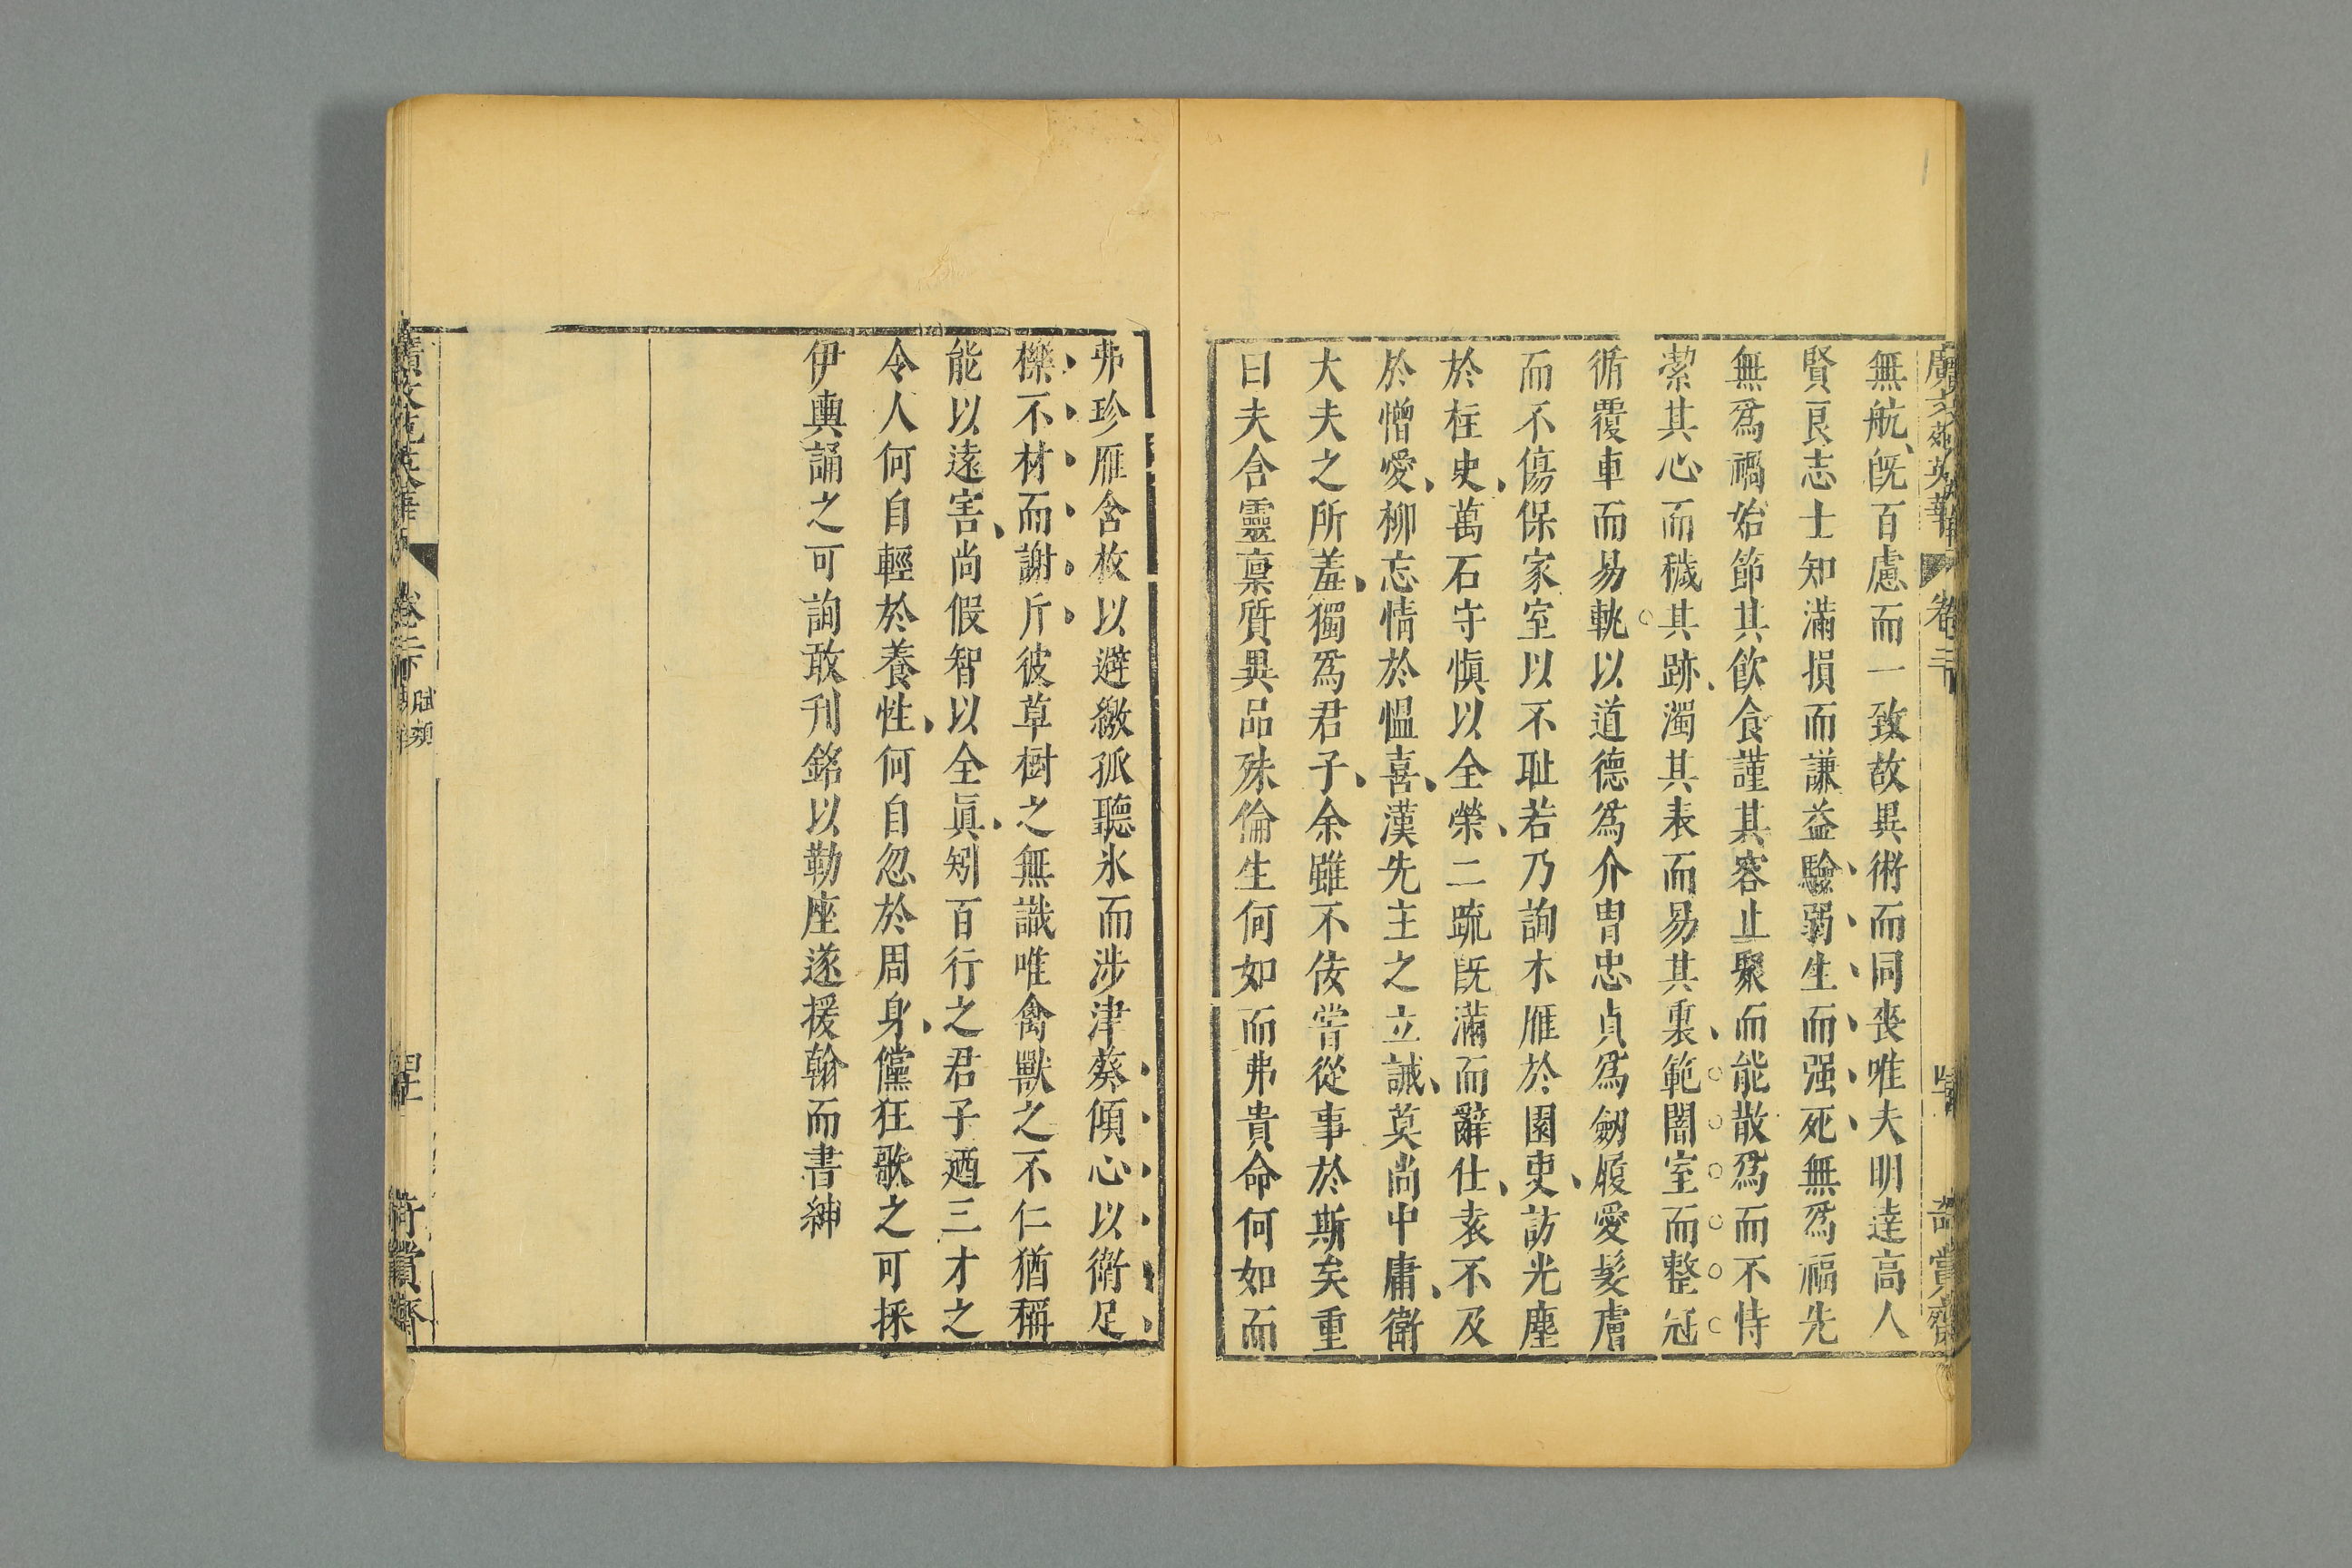 廣文苑英華 卷二十 奇賞齋
無航既百慮而一致故異術而同喪唯夫明達高人
賢良志士知滿損而謙益驗弱生而强死無爲福先
無爲禍始節其飲食謹其容止聚而能散爲而不恃
潔其心而穢其跡濁其表而易其裏範闇室而整冠
循覆車而易軌以道德爲介冑忠貞爲劒履愛髮膚
而不傷保家室以不耻若乃詢木雁於園吏訪光塵
於柱史萬石守愼以全榮二疏旣滿而辭仕袁不及
於憎愛柳忘情於慍喜漢先主之立誡莫尚中庸衛
大夫之所羞獨爲君子余雖不佞嘗從事於斯矣重
曰夫含靈稟質異品殊倫生何如而弗貴命何如而
弗珍雁含枚以避繳狐聽氷而涉津葵傾心以衛足
櫟不材而謝斤彼草樹之無識唯禽獸之不仁猶稱
能以遠害尚假智以全眞矧百行之君子廼三才之
令人何自輕於養性何自忽於周身儻狂歌之可採
伊輿誦之可詢敢刊銘以勒座遂援翰而書紳
廣文苑英華 卷二十 賦類 奇賞齋